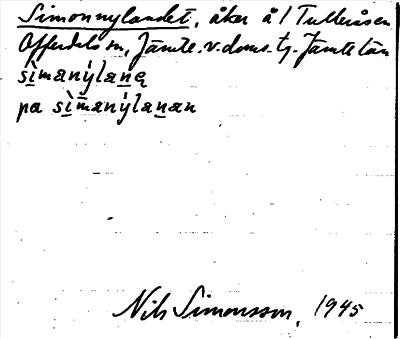 Simonnylandet, åker å 1 Tulleråsen
Offerdals sn, Jämtl. v. doms. tj. Jämtl. län
sìmanýlaną
pa sìmanýlanan
Nils Simonsson, 1945